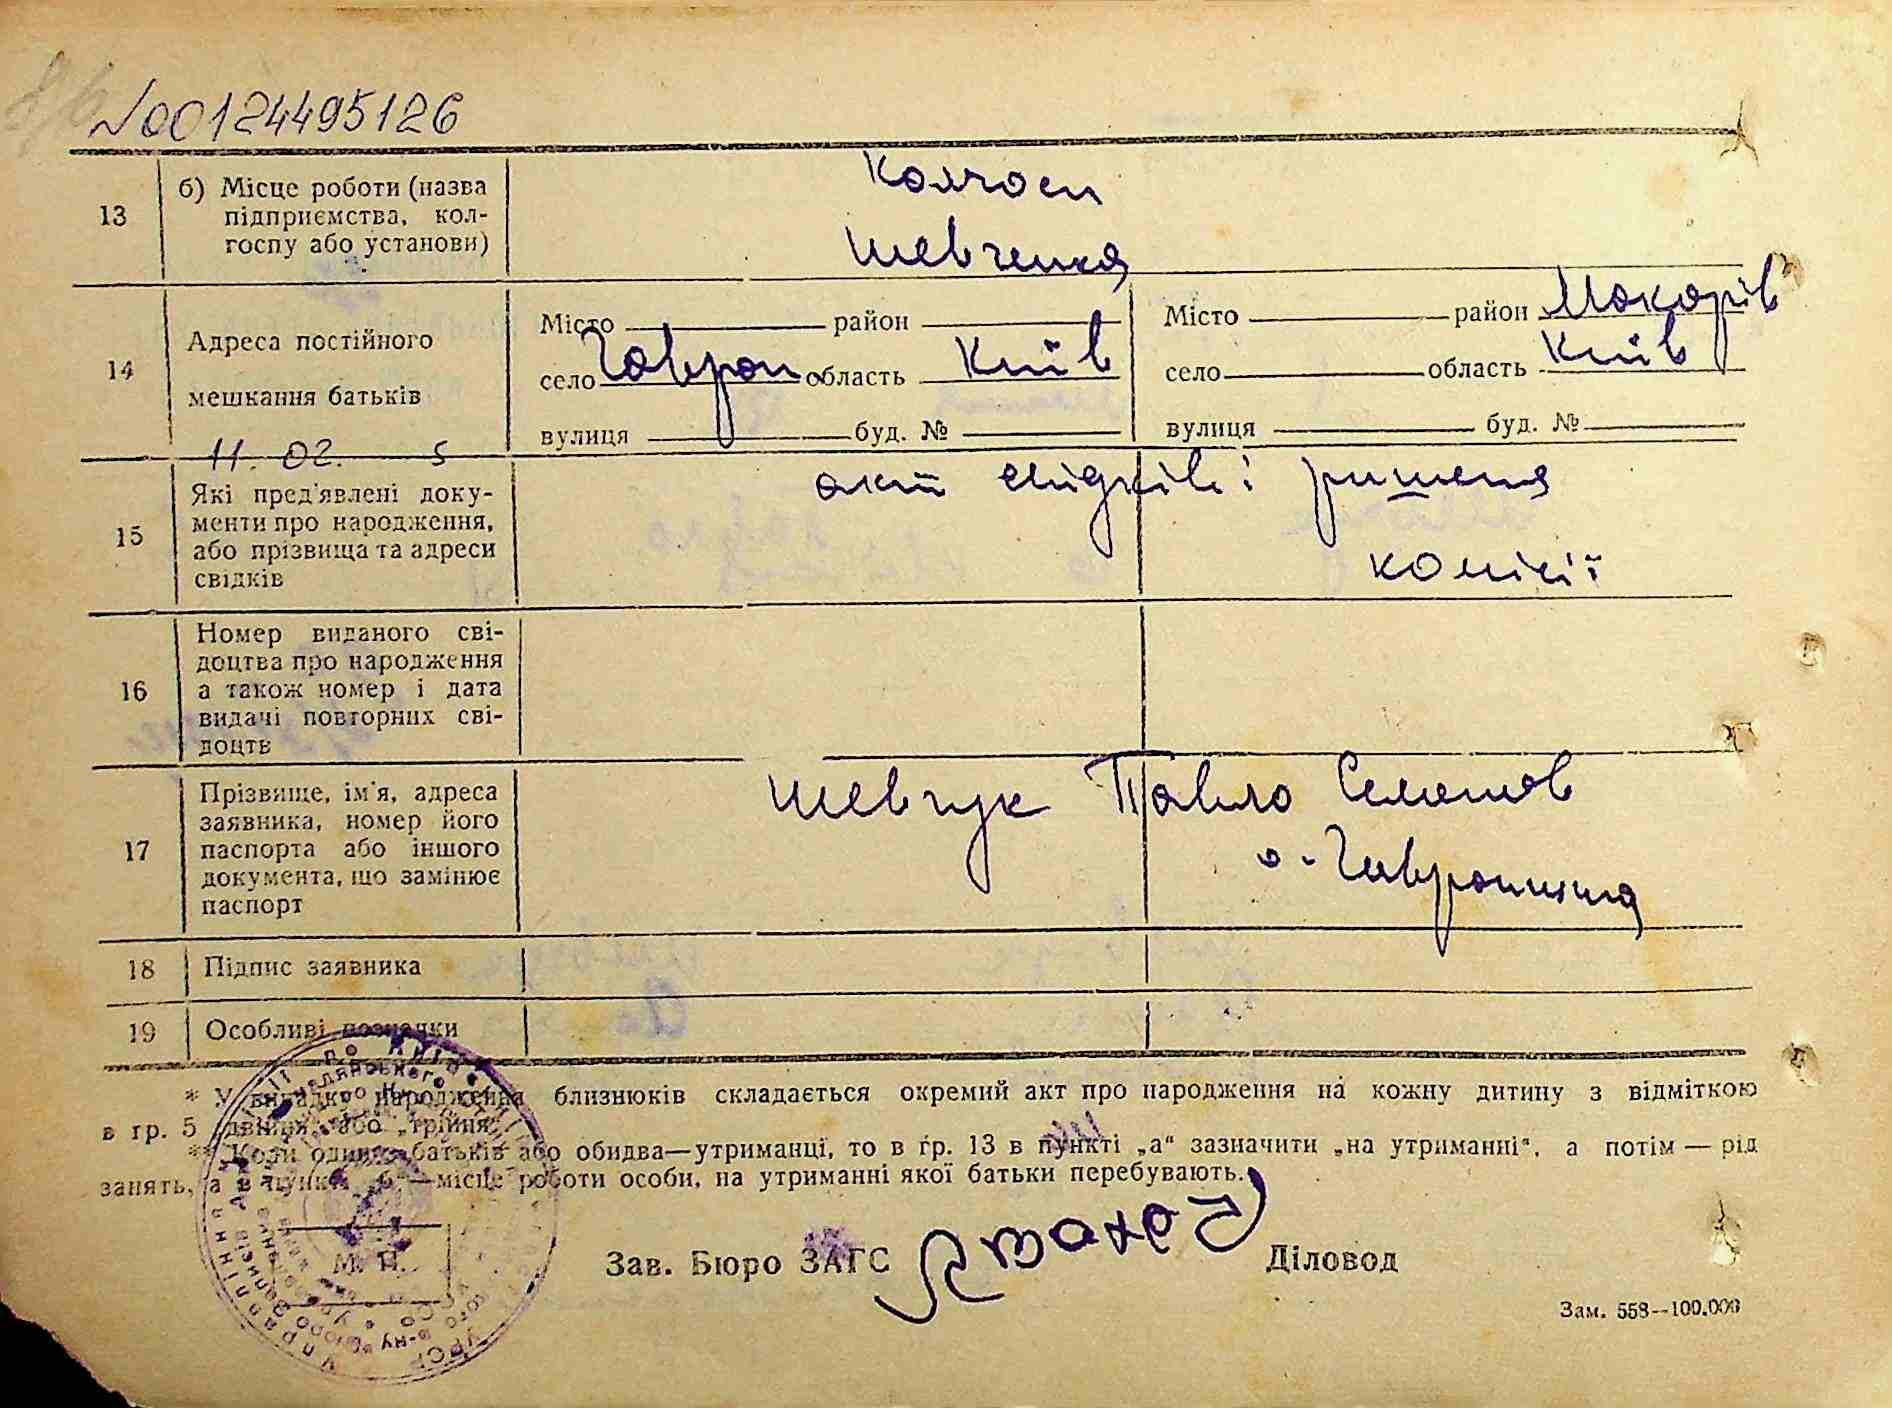 №00124495126
13
б) Місце роботи (назва
підприємства, кол-
госпу або установи)
колгосп
Шевченка
14
Адреса постійного
мешкання батьків
Місто район
село Гаврон область Київ
вулиця буд. №
Місто район Макарів
село область Київ
вулиця буд. №
11. 02. 5
15
Які пред'явлені доку-
менти про народження,
або прізвища та адреси
свідків
акт свідків і ришеня
комісії
16
Номер виданого сві-
доцтва про народження
а також номер і дата
видачі повторних сві-
доцтв
17
Прізвище, ім'я, адреса
заявника, номер його
паспорта або іншого
документа, що замінює
паспорт
Шевчук Павло Семенов
с. Гавронщина
18
Підпис заявника
19
Особливі позначки
* У випадку народження близнюків складається окремий акт про народження на кожну дитину з відміткою
в гр. 5 „двійня" або „трійня"
** Коли один з батьків або обидва—утриманці, то в гр. 13 в пункті „а" зазначити „на утриманні", а потім — рід
занять, а в пункті „б"—місце роботи особи, на утриманні якої батьки перебувають.
М. П.
Зав. Бюро ЗАГС
Діловод
Зам. 558—100.000